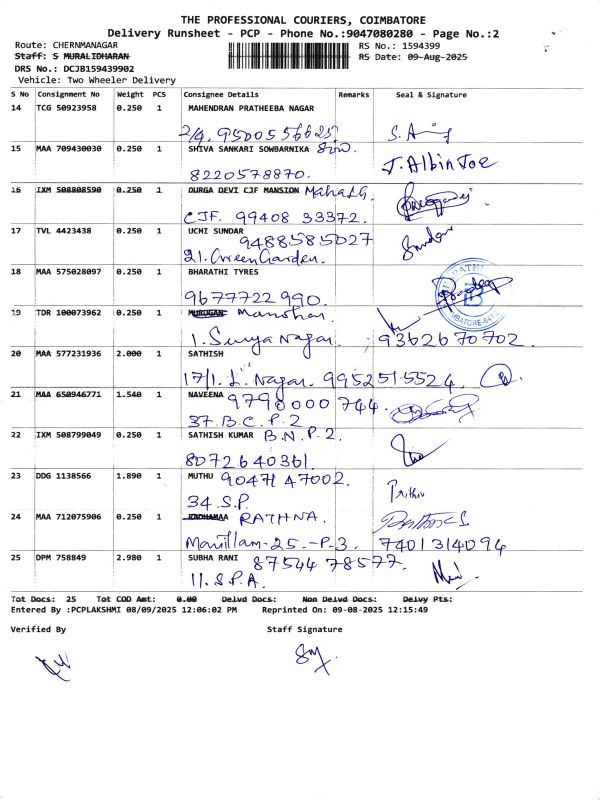 THE PROFESSIONAL COURIERS, COIMBATORE
Delivery Runsheet - PCP - Phone No.:9047080280 - Page No.:2
Route: CHERNMANAGAR RS No.: 1594399
Staff: S MURALIDHARAN RS Date: 09-Aug-2025
DRS No.: DCJB159439902
Vehicle: Two Wheeler Delivery
S No Consignment No Weight PCS Consignee Details Remarks Seal & Signature
14 TCG 50923958 0.250 1 MAHENDRAN PRATHEEBA NAGAR
2/9. 9500556625 S.
15 MAA 709430030 0.250 1 SHIVA SANKARI SOWBARNIKA
8220578870. J. Albin Joe
16 IXM 508808590 0.250 1 DURGA DEVI CJF MANSION
CJF. 99408 33372.
17 TVL 4423438 0.250 1 UCHI SUNDAR
9488585027
21. Green Garden. Sundar
18 MAA 575028097 0.250 1 BHARATHI TYRES
9677722990.
19 TDR 100073962 0.250 1 MURUGAN Manohar
1. Surya Nagar. 9362670702
20 MAA 577231936 2.000 1 SATHISH
17/1. L. Nagar. 9952515524
21 MAA 650946771 1.540 1 NAVEENA 9790000744.
37. B.C.P-2
22 IXM 508799049 0.250 1 SATHISH KUMAR B.N.P-2.
8072640361.
23 DDG 1138566 1.890 1 MUTHU 9047147002.
34 S.P. Prithiv
24 MAA 712075906 0.250 1 RATHNA.
Manillam-25.-P-3. 7401314094
25 DPM 758849 2.980 1 SUBHA RANI 87544 78577.
11. S.P.A.
Tot Docs: 25 Tot COD Amt: 0.00 Delvd Docs: Non Delvd Docs: Delvy Pts:
Entered By :PCPLAKSHMI 08/09/2025 12:06:02 PM Reprinted On: 09-08-2025 12:15:49
Verified By Staff Signature